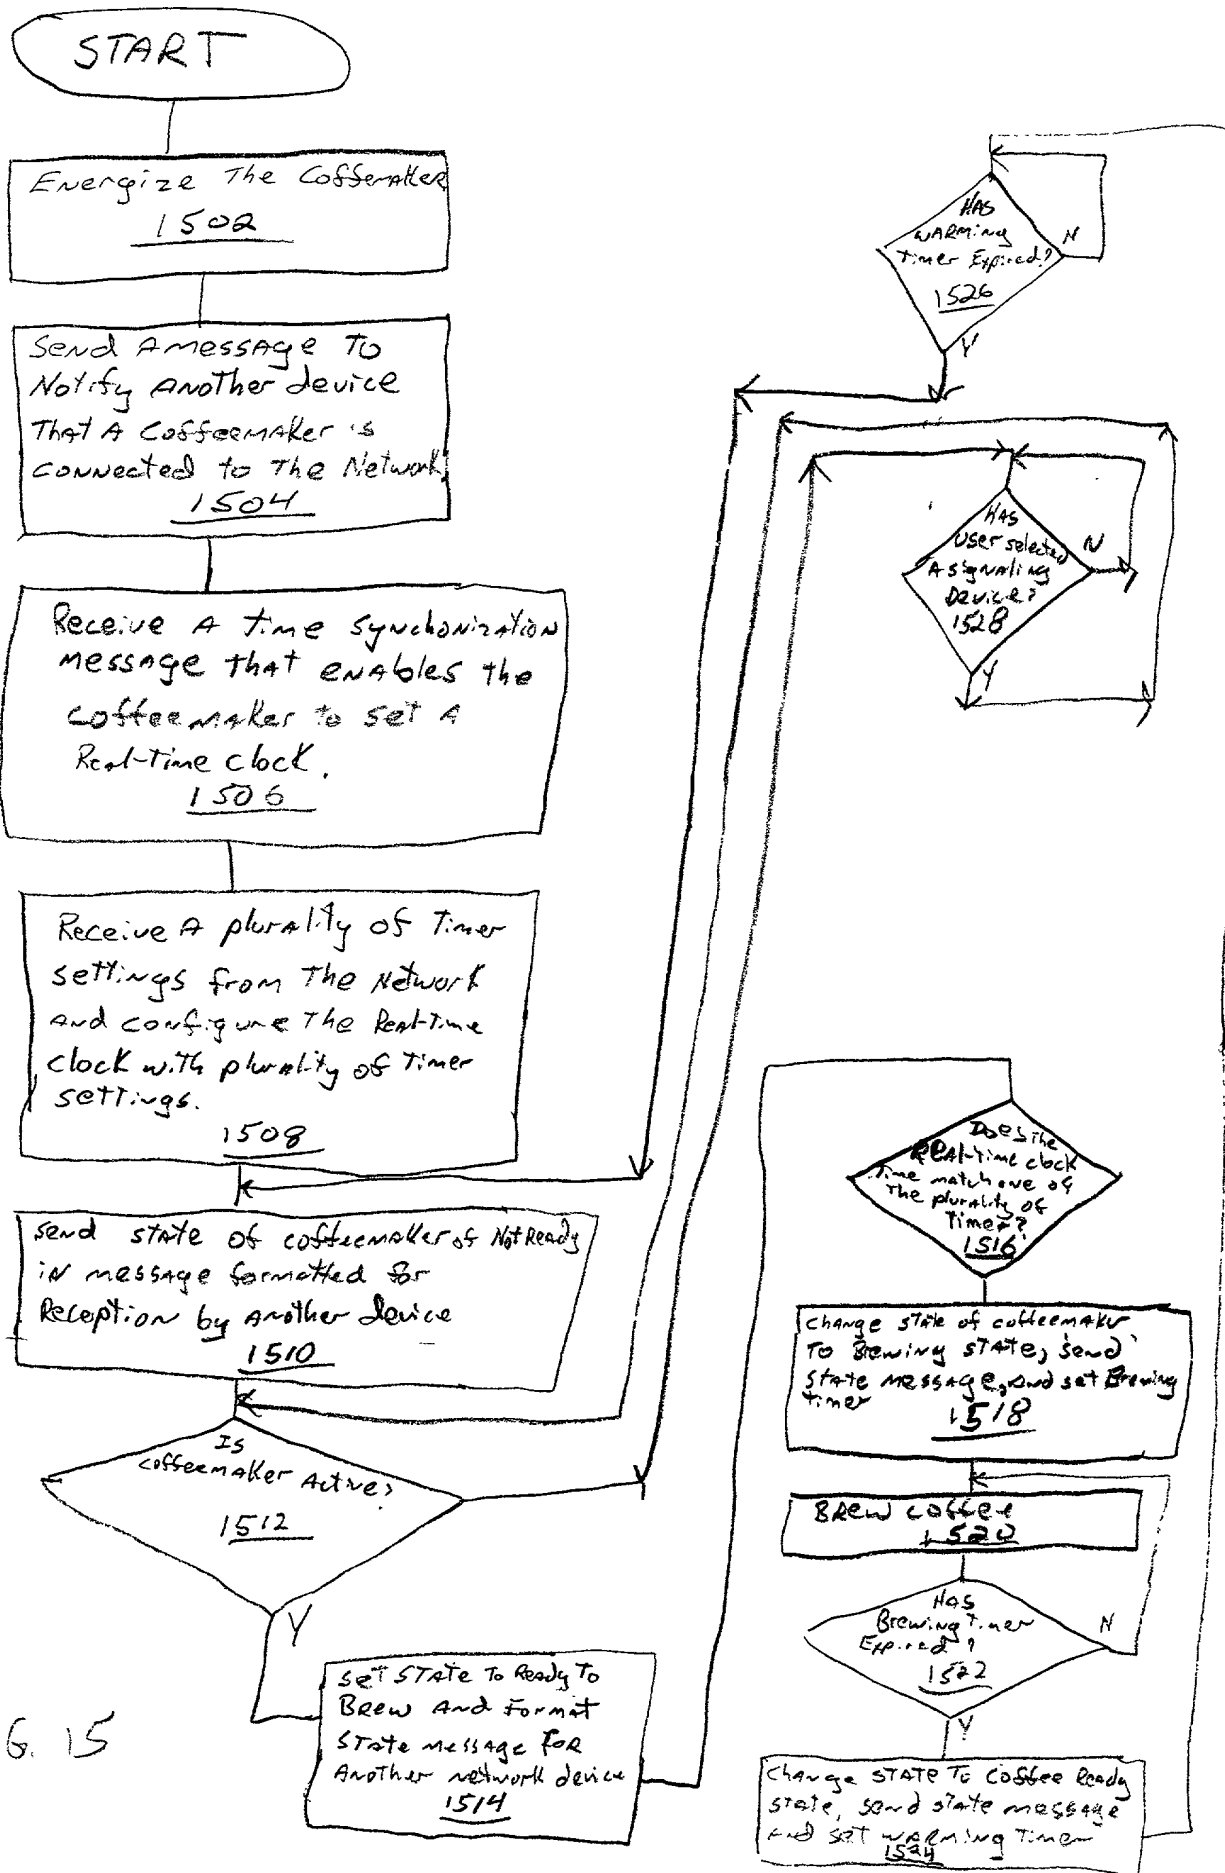 START
Energize The Coffemaker
1502
Send A message To
Notify Another device
That A Coffeemaker is
connected to The Network
1504
Receive A time synchonization
message that enables the
coffeemaker to set A
Real-Time clock.
1506
Receive A plurality of Timer
settings from The Network
And configure The Real-Time
clock with plurality of Timer
settings.
1508
send state of coffeemaker of Not Ready
in message formatted for
Reception by Another device
1510
Is
coffeemaker Active?
1512
Y
set STATE To Ready To
Brew And Format
State message for
Another network device
1514
G. 15
Has
warming
Timer Expired?
1526
N
Y
Has
User selected
A signaling
Device?
1528
N
Y
Does the
Real-Time clock
Time match one of
The plurality of
Timers?
1516
change state of coffeemaker
To Brewing state, send
state message, and set Brewing
timer
1518
Brew coffee
1520
Has
Brewing Timer
Expired?
1522
N
Y
Change STATE To Coffee Ready
state, send state message
and set warming Timer
1524